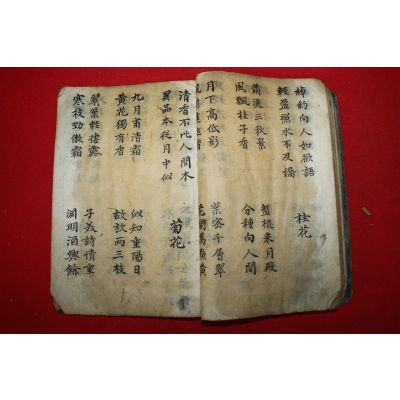 綽約向人如欲語
輕盈照水不及嬌
桂花
蕭灑三秋景
盤根來月殿
風飄桂子香
分種向人間
月下高低影
葉密千層翠
風前
萬點黃
清香不比人間木
異品本從月中似
菊花
九月甫清霜
似知重陽日
黃花獨有香
故放兩三枝
翠葉輕露
子美詩情重
寒枝勁傲霜
淵明酒興餘